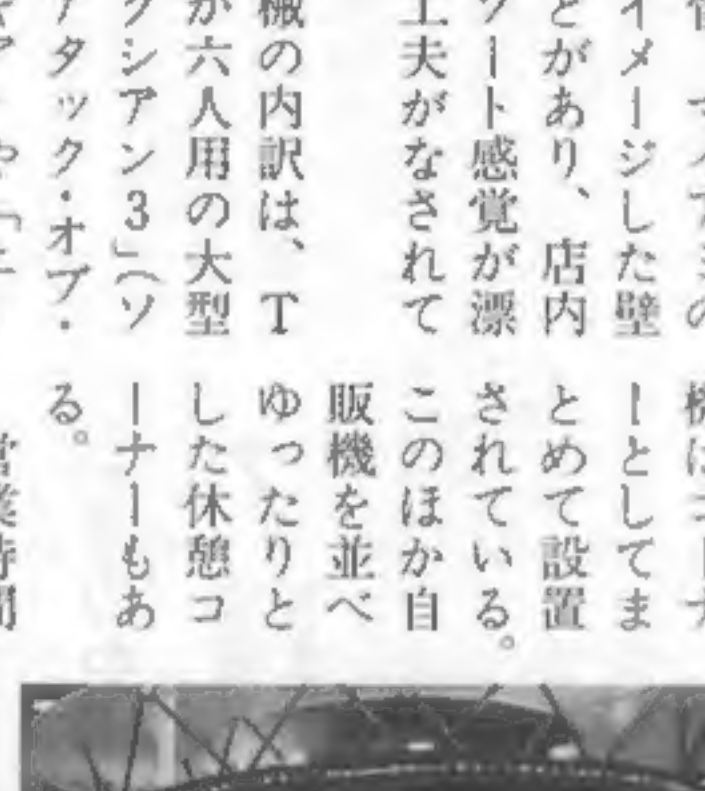 マイアミの
イメージした壁
とがあり、店内
ゾート感覚が漂
工夫がなされて
械の内訳は、T
が六人用の大型
クシアン3」(ソ
アタック・オブ・
機はコーナ
ーとしてま
とめて設置
されている。
このほか自
販機を並べ
ゆったりと
した休憩コ
ーナーもあ
る。
営業時間